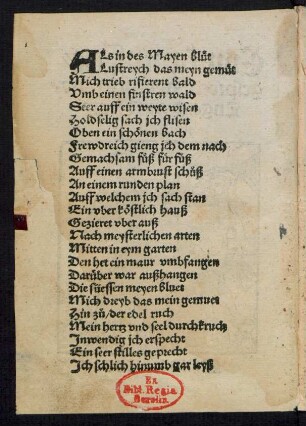 Als in des Mayen blůt
Lustreych das meyn gemůt
Mich trieb rifierent bald
Vmb einen finstren wald
Seer auff ein weyte wisen
Holdselig sach ich flisen
Oben ein schönen bach
Frewdreich gieng ich dem nach
Gemachsam fůß für fůß
Auff einen armbrust schůß
An einem runden plan
Auff welchem ich sach stan
Ein vber köstlich hauß
Gezieret vber auß
Nach meysterlichen arten
Mitten in eym garten
Den het ein maur vmbfangen
Darüber war außhangen
Die süessen meyen bluet
Mich dreyb das mein gemuet
Hin zů/ der edel ruch
Mein hertz vnd seel durchkruch
Inwendig ich erspecht
Ein seer stilles geprecht
Ich schlich hinumb gar leyß
Ex
Bibl. Regia
Berolin.